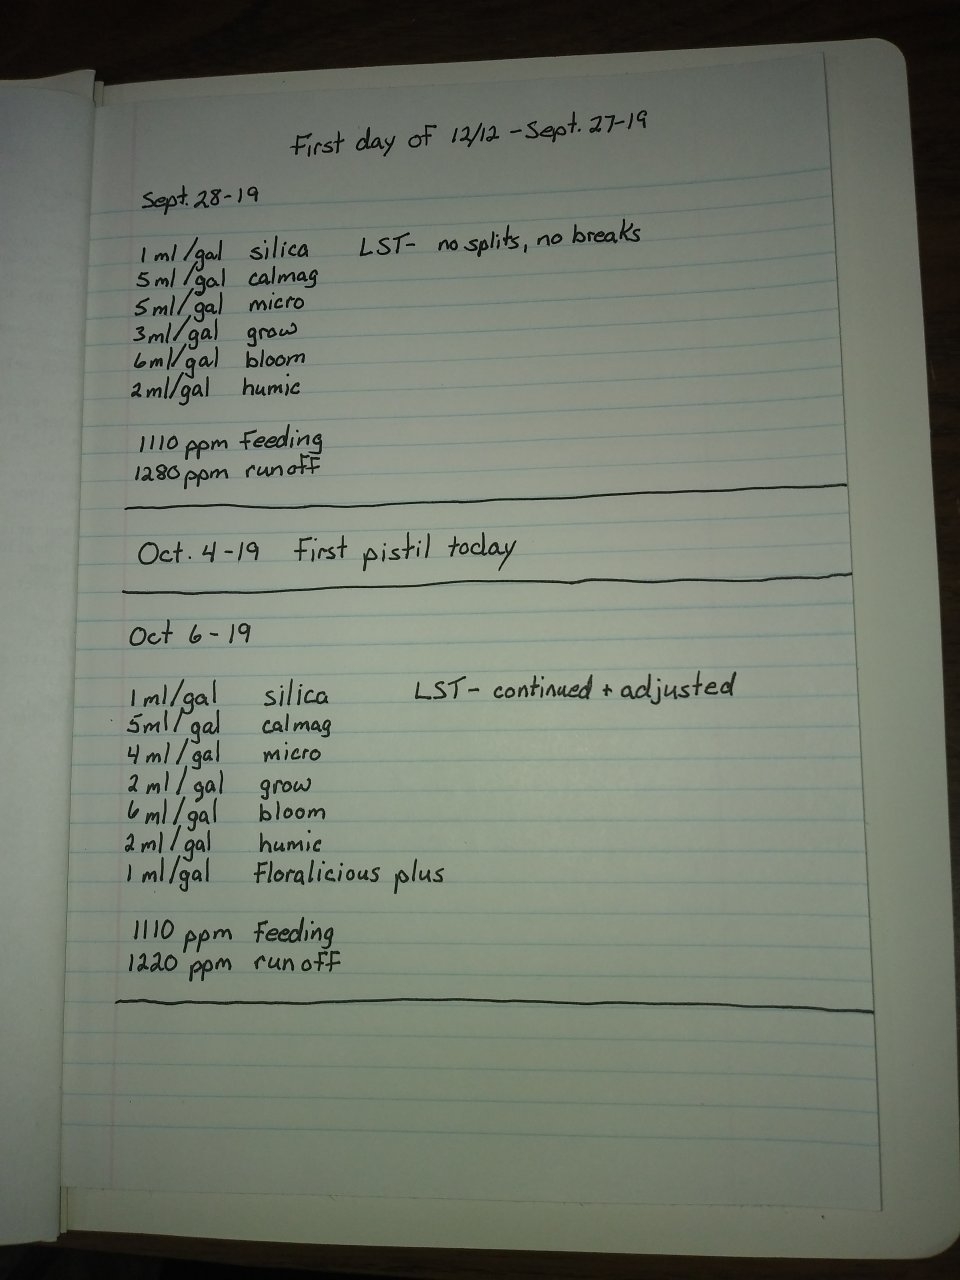 First day of 12/12 - Sept. 27-19
Sept. 28-19
1 ml/gal silica LST- no splits, no breaks
5 ml/gal calmag
5 ml/gal micro
3 ml/gal grow
6 ml/gal bloom
2 ml/gal humic
1110 ppm feeding
1280 ppm runoff
Oct. 4-19 First pistil today
Oct 6-19
1 ml/gal silica LST- continued + adjusted
5 ml/gal calmag
4 ml/gal micro
2 ml/gal grow
6 ml/gal bloom
2 ml/gal humic
1 ml/gal Floralicious plus
1110 ppm feeding
1220 ppm runoff